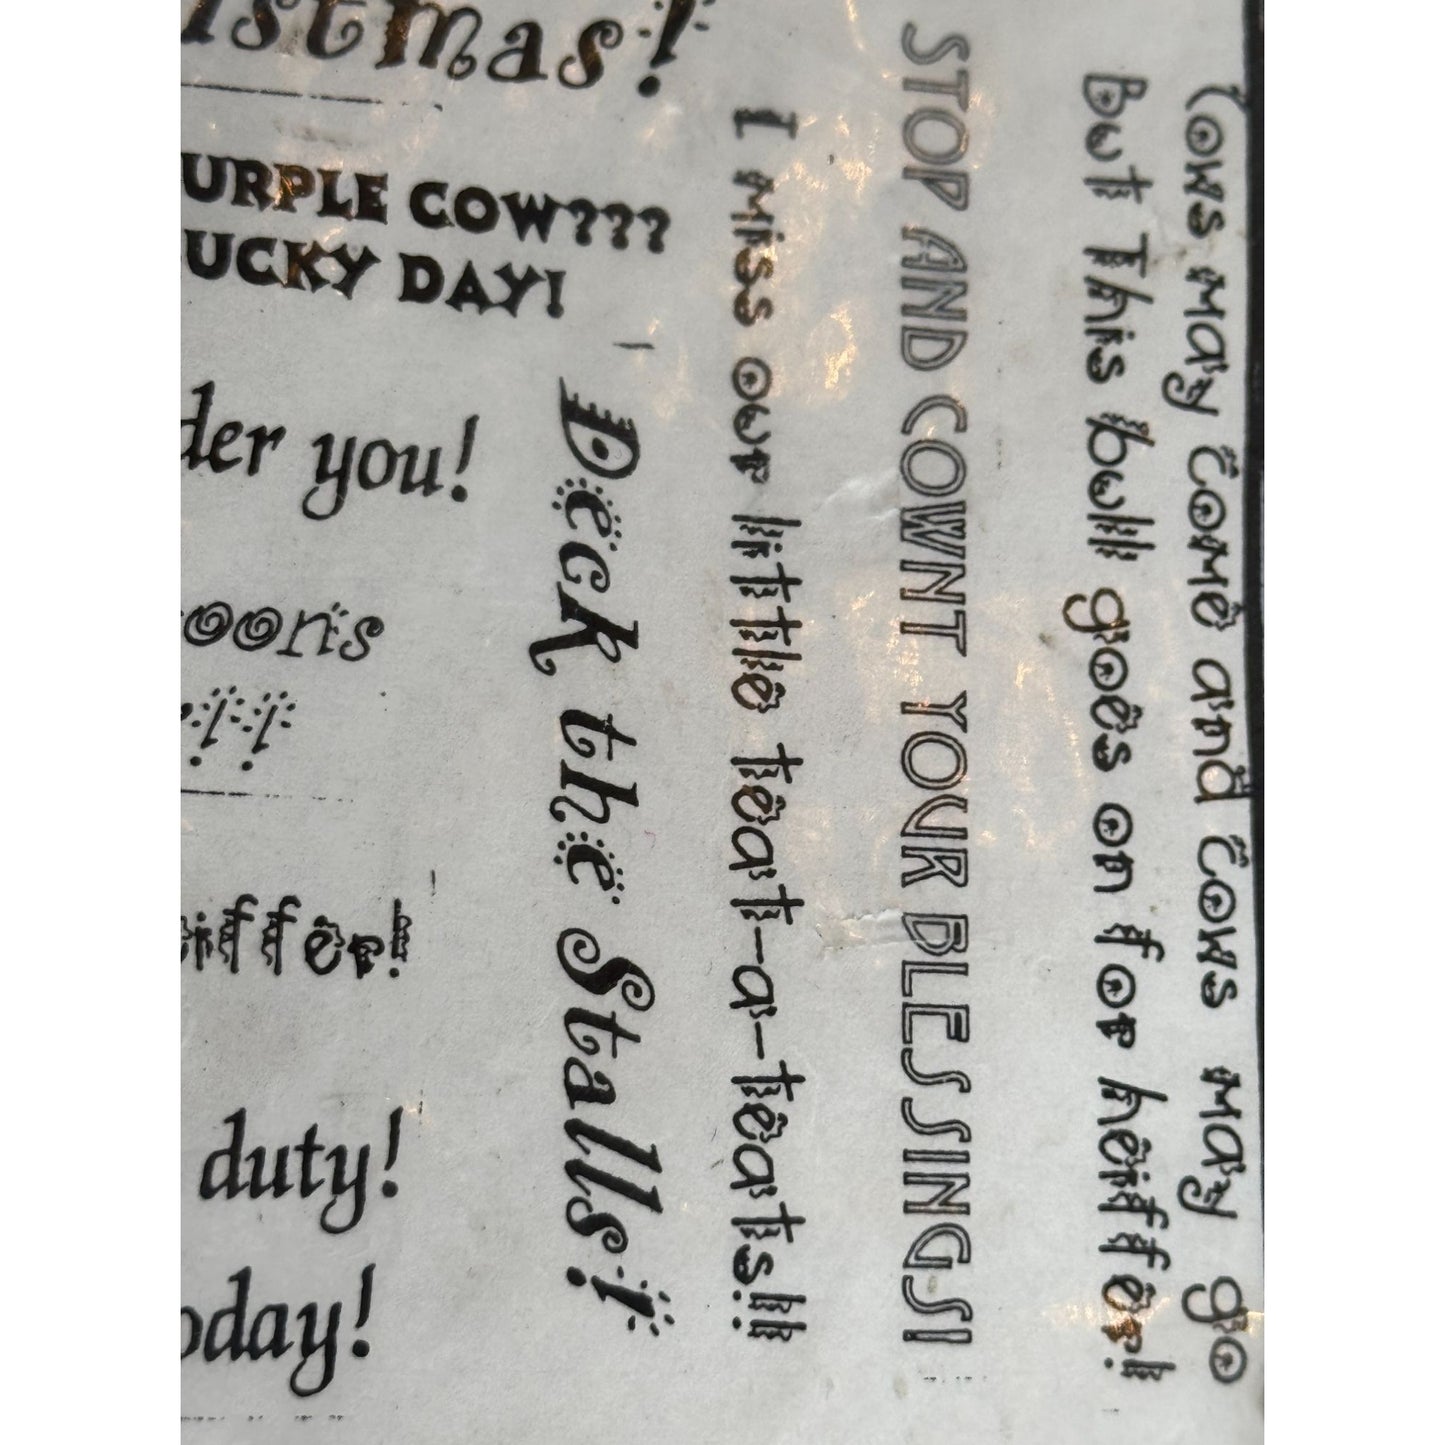 mas!
COW???
DAY!
you!
duty!
Deck the Stalls!
I miss our little teat-a-teats!!
STOP AND COWNT YOUR BLESSINGS!
Cows may come and cows may go
But this bull goes on for heiffer!